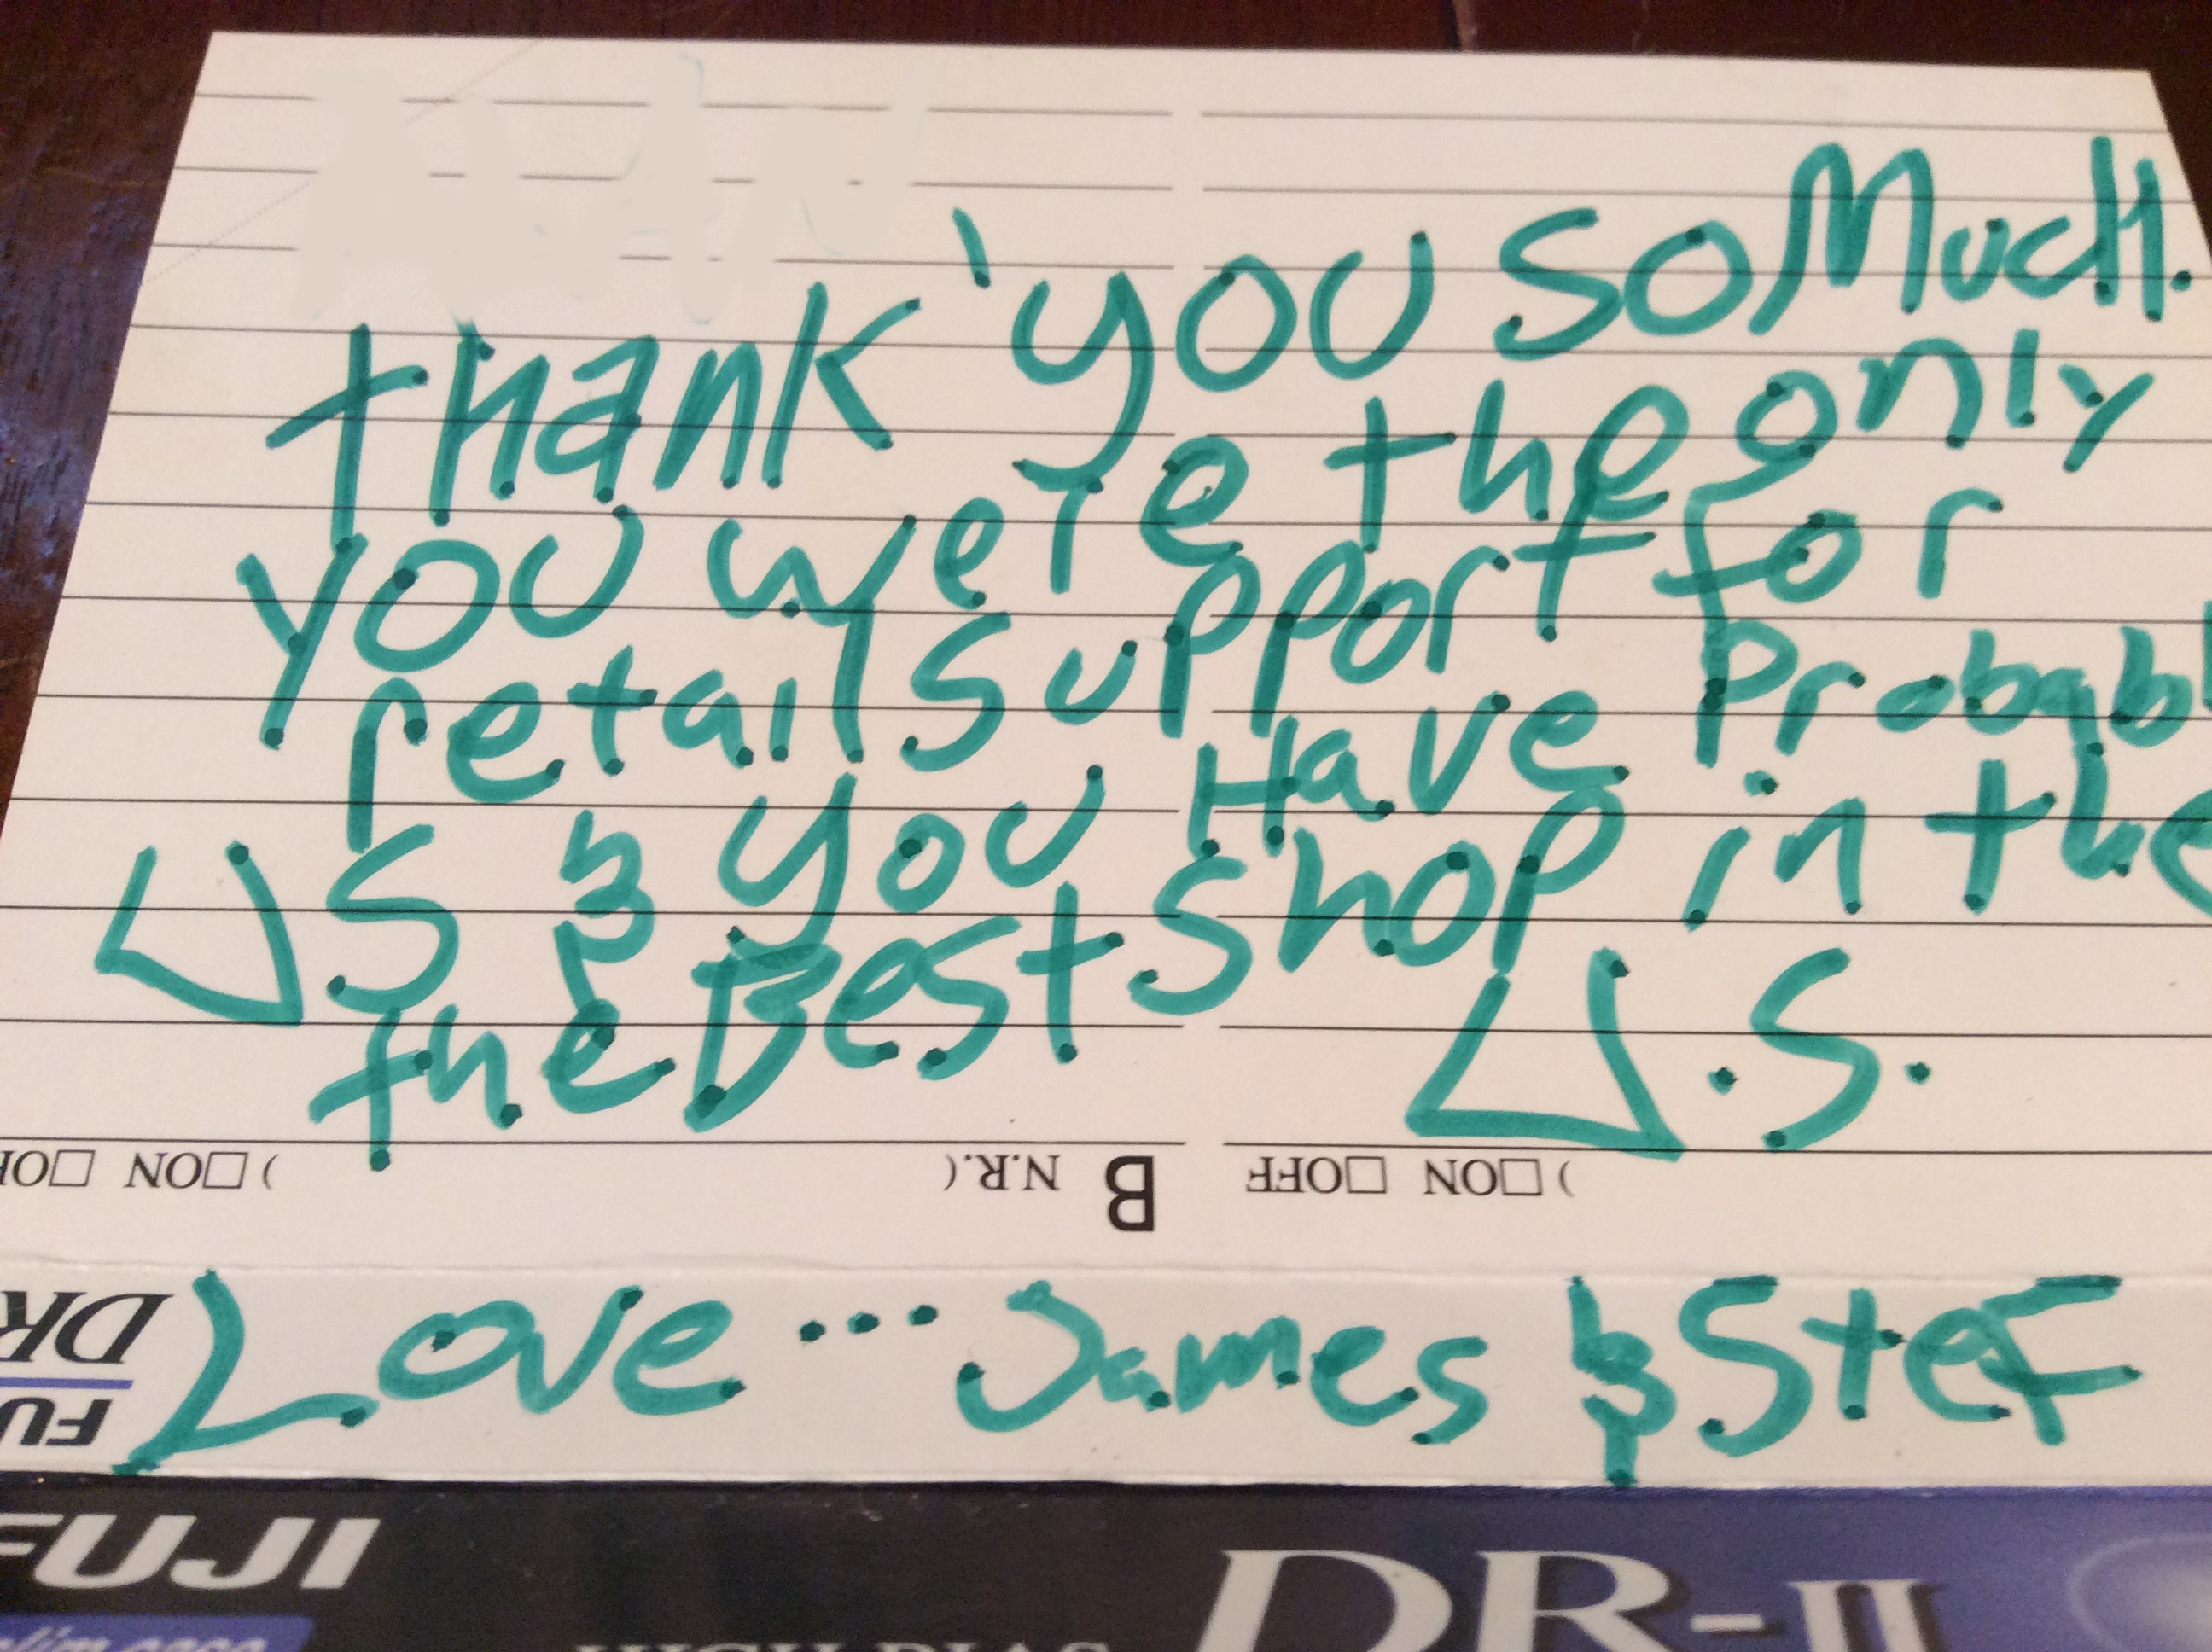 thank you so MucH.
you were the only
retail support for
US & you Have Probabl
the Best Shop in the
U.S.
) □ON □OFF
B N.R. (
) □ON □OF
Love... James & Stef
DR
FU
FUJI
DR-II
slim case
HIGH BIAS